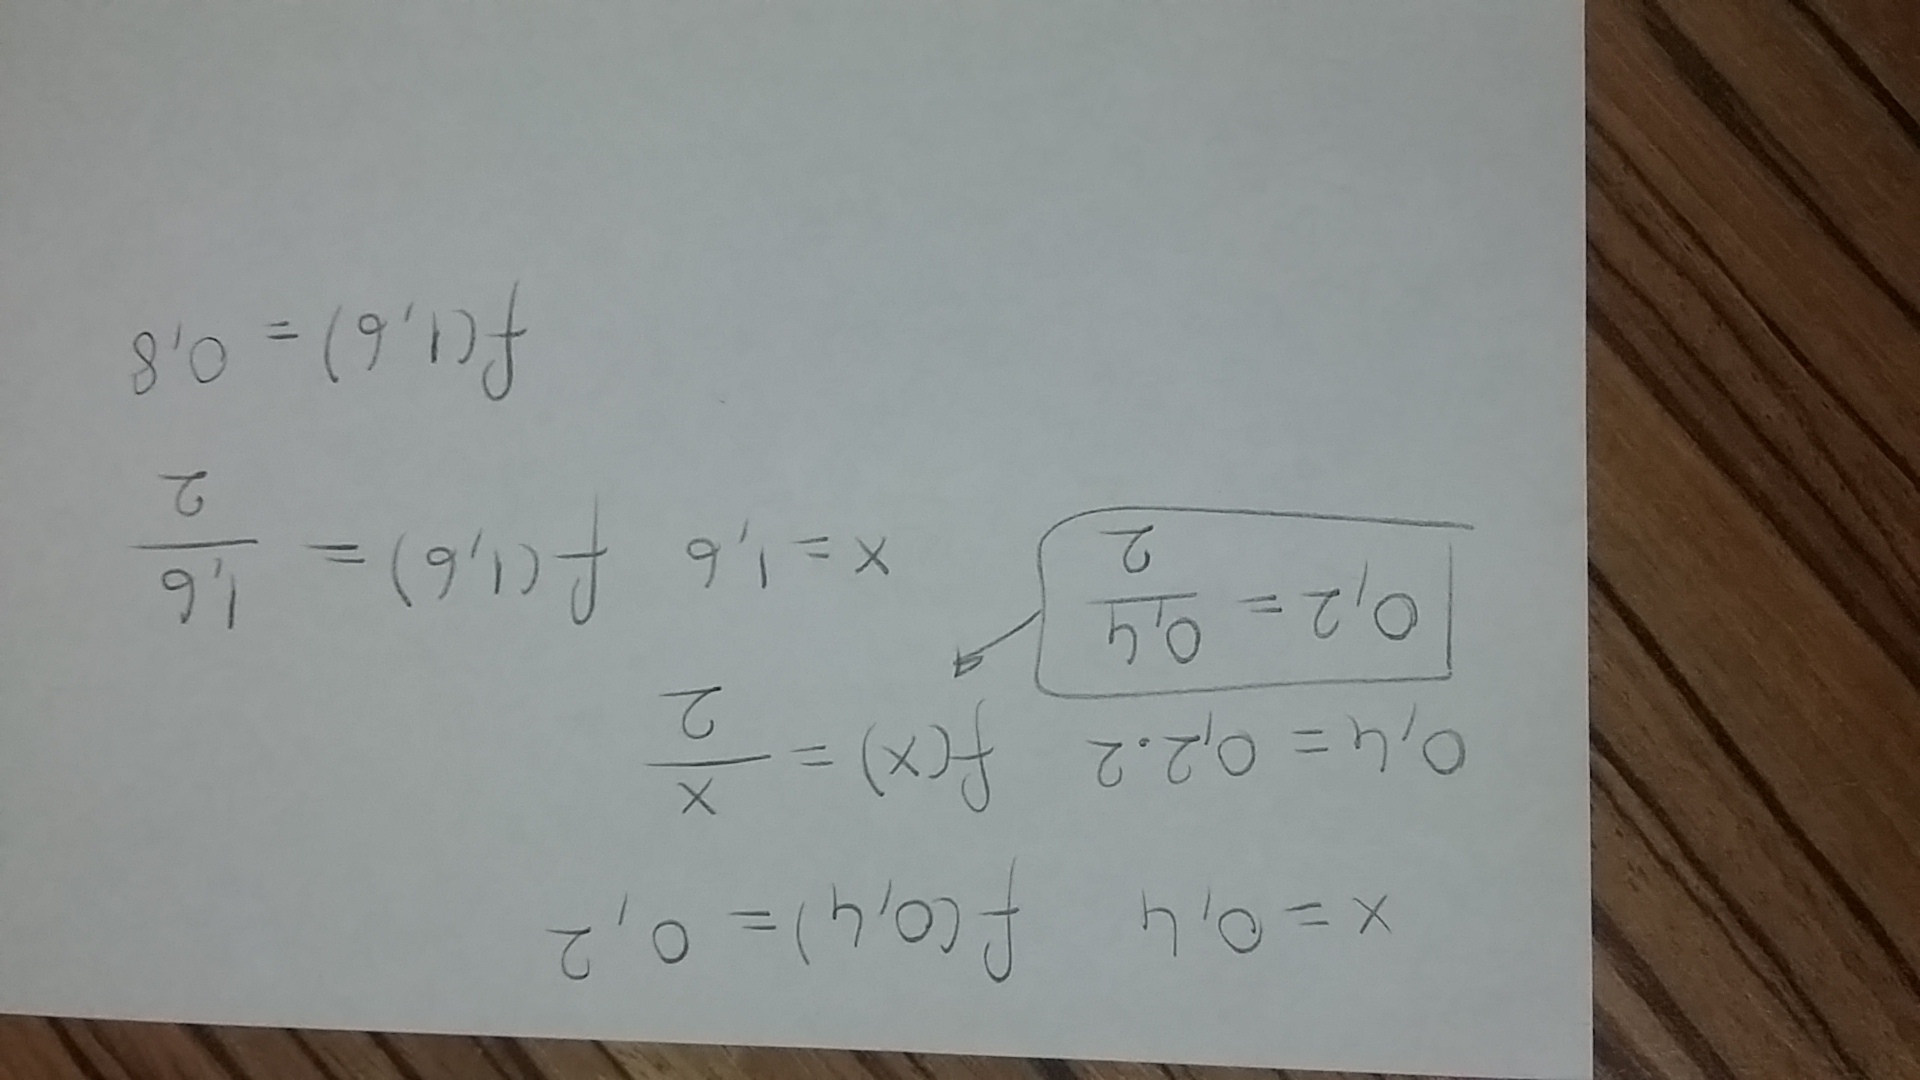 x = 0,4 f(0,4) = 0,2
0,4 = 0,2·2 f(x) = x/2
0,2 = 0,4/2
x = 1,6 f(1,6) = 1,6/2
f(1,6) = 0,8